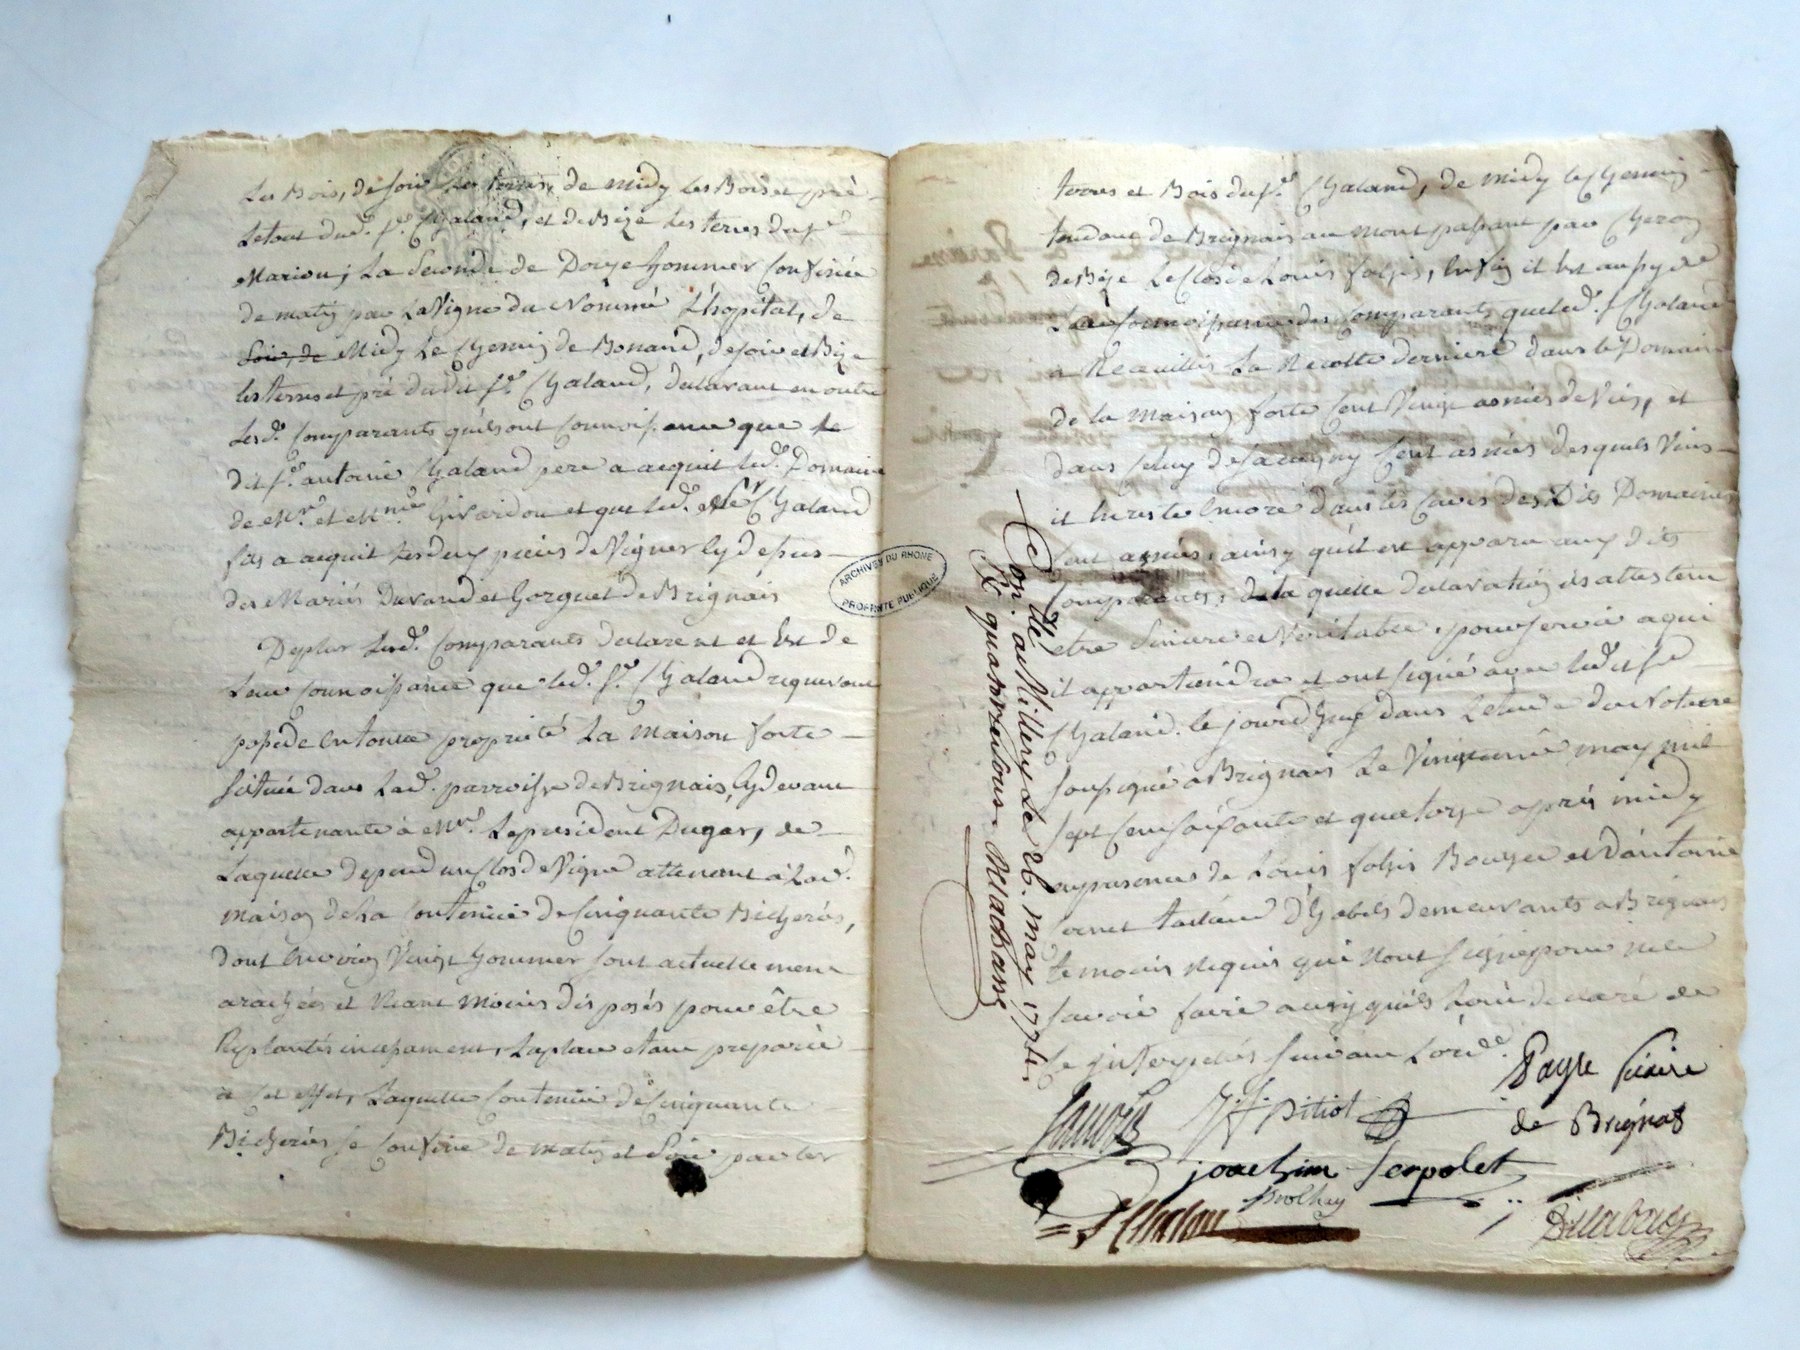 Les Bois, de soir les terres, de midy les Bois et pré
Le tout dud. sr. Chaland, et de Bize les terres du sr.
Marion; La seconde de Douze hommées Confinée
de matin par La Vigne du Nommé L'hopital, de
soir, de Midy Le Chemin de Bonand, de soir et Bize
les terres et pré dudit sr. Chaland, declarant en outre
Lesd. Comparants qu'ils ont Connoissance que le
dit sr. antoine Chaland pere a acquit led. Domaine
de Mr. et Mme. Girardon et que led. sr Chaland
fils a acquit les deux pieces de Vignes Cy dessus
des Mariés Durand et Gorguet de Brignais
De plus Lesd. Comparants declarent et Est de
Leur Connoissance que led. sr. Chaland
possede En toute proprieté La maison forte
Scituée dans Lad. parroisse de Brignais, Cy devant
appartenante à Mr. Le president Dugas, de
Laquelle depend un Clos de Vigne attenant à Lad.
maison de La Contenüe de Cinquante Bicherées,
dont Environ Vingt hommées sont actuellement
arachées et Neant Moins disposés pour être
Replantés incessament, La place etant preparée
a Cet effet, Laquelle Contenüe de Cinquante
Bicherées se Confine de matin et Soir par les
ARCHIVES DU RHONE
PROPRIÉTÉ PUBLIQUE
terres et Bois du sr. Chaland, de midy le Chemin
tendant de Brignais au mont passant par Cheron
de Bize Le Clos de Louis folxis, Enfin il Est aussy de
La Connoissance des Comparants que led. sr Chaland
a Recuillis La Recolte derniere dans le Domaine
de la Maison forte Cent Vingt asnées de Vin, et
dans Celuy de Sacugny Cent asnées desquels Vins
il En reste Encore dans les Caves des Dits Domaines
Cent asnées, ainsy qu'il est apparu aux dits
Comparants, de la quelle declaration ils attestent
etre Sincere et Veritable, pour servir a qui
il appartiendra et ont signé avec led. sr
Chaland. le jourd'huy dans L'etude du Notaire
soussigné a Brignais Le Vingtunie may mil
sept Cent soixante et quatorze aprés midy
en presence de Louis folxis Bouyer et d'antoine
tailleur d'habits demeurants a Brignais
temoins Requis qui N'ont signé pour ne le
savoir faire ainsy qu'ils L'ont declaré de
Ce interpellés suivant L'ord.
Conllé.
Con. a Millery Le 26. may 1774.
R. quatorze sous Deladsans
J. F. Pitiot
Payre Vicaire
de Brignas
joachim Serpolet
Brolhuy
Chalan